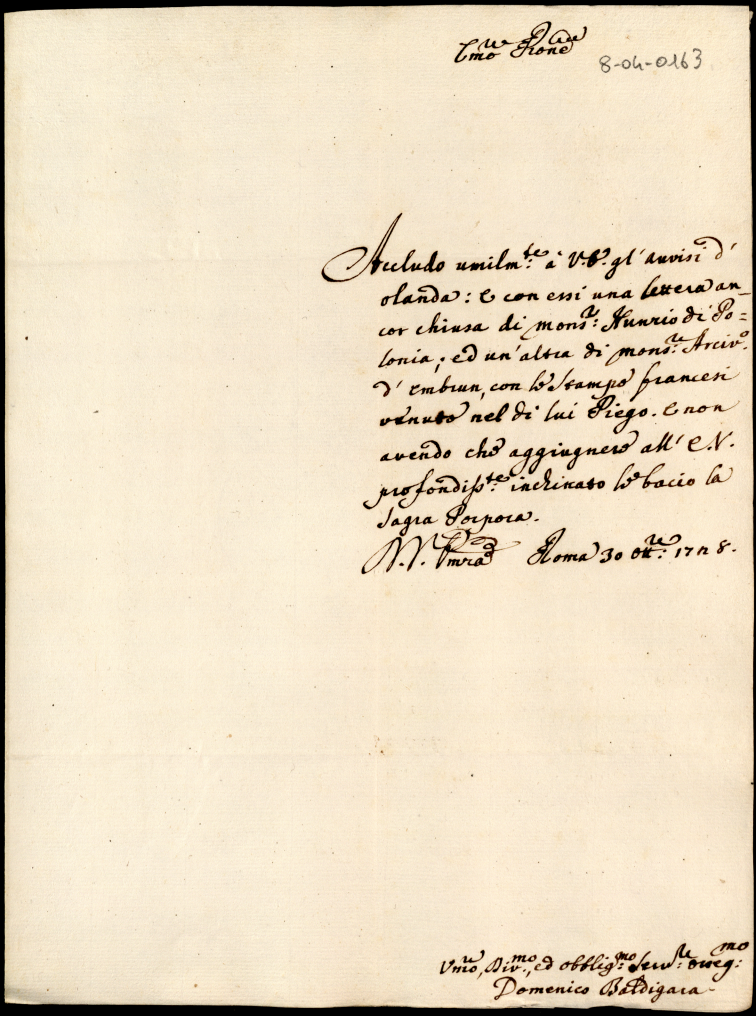 Emo Prone
8-04-0163
Accludo umilmte: à V.E. gl'auvisi d'
olanda: e con essi una lettera an-
cor chiusa di monsr: Nunzio di Po=
lonia; ed un'altra di monsr: Arcivo.
d'Embrun, con le stampe francesi
venute nel di lui Piego. e non
avendo che aggiugnere all'E.V.
profondisste: inchinato le bacio la
Sagra Porpora.
Roma 30 ottre: 1728.
Vmo, Divmo, ed obbligmo: Servre: osseqmo:
Domenico Baldigara